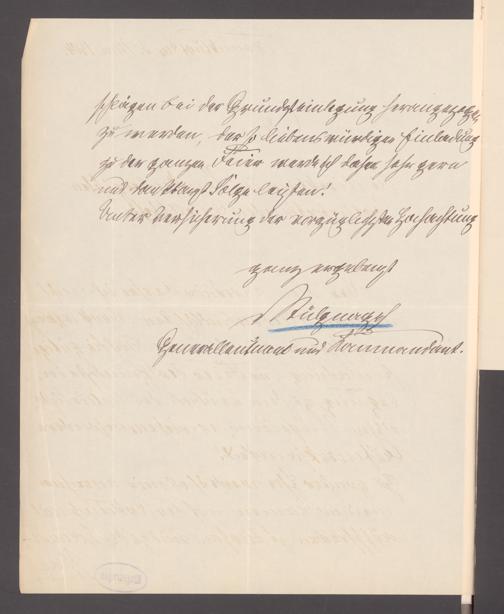 schlägen bei der Grundsteinlegung herangezogen
zu werden, der so liebenswürdigen Einladung
zu der ganzen Feier werde ich daher sehr gern
und dankbarst Folge leisten.
Unter Versicherung der vorzüglichsten Hochachtung
ganz ergebenst
Generalleutnant und Kommandant.